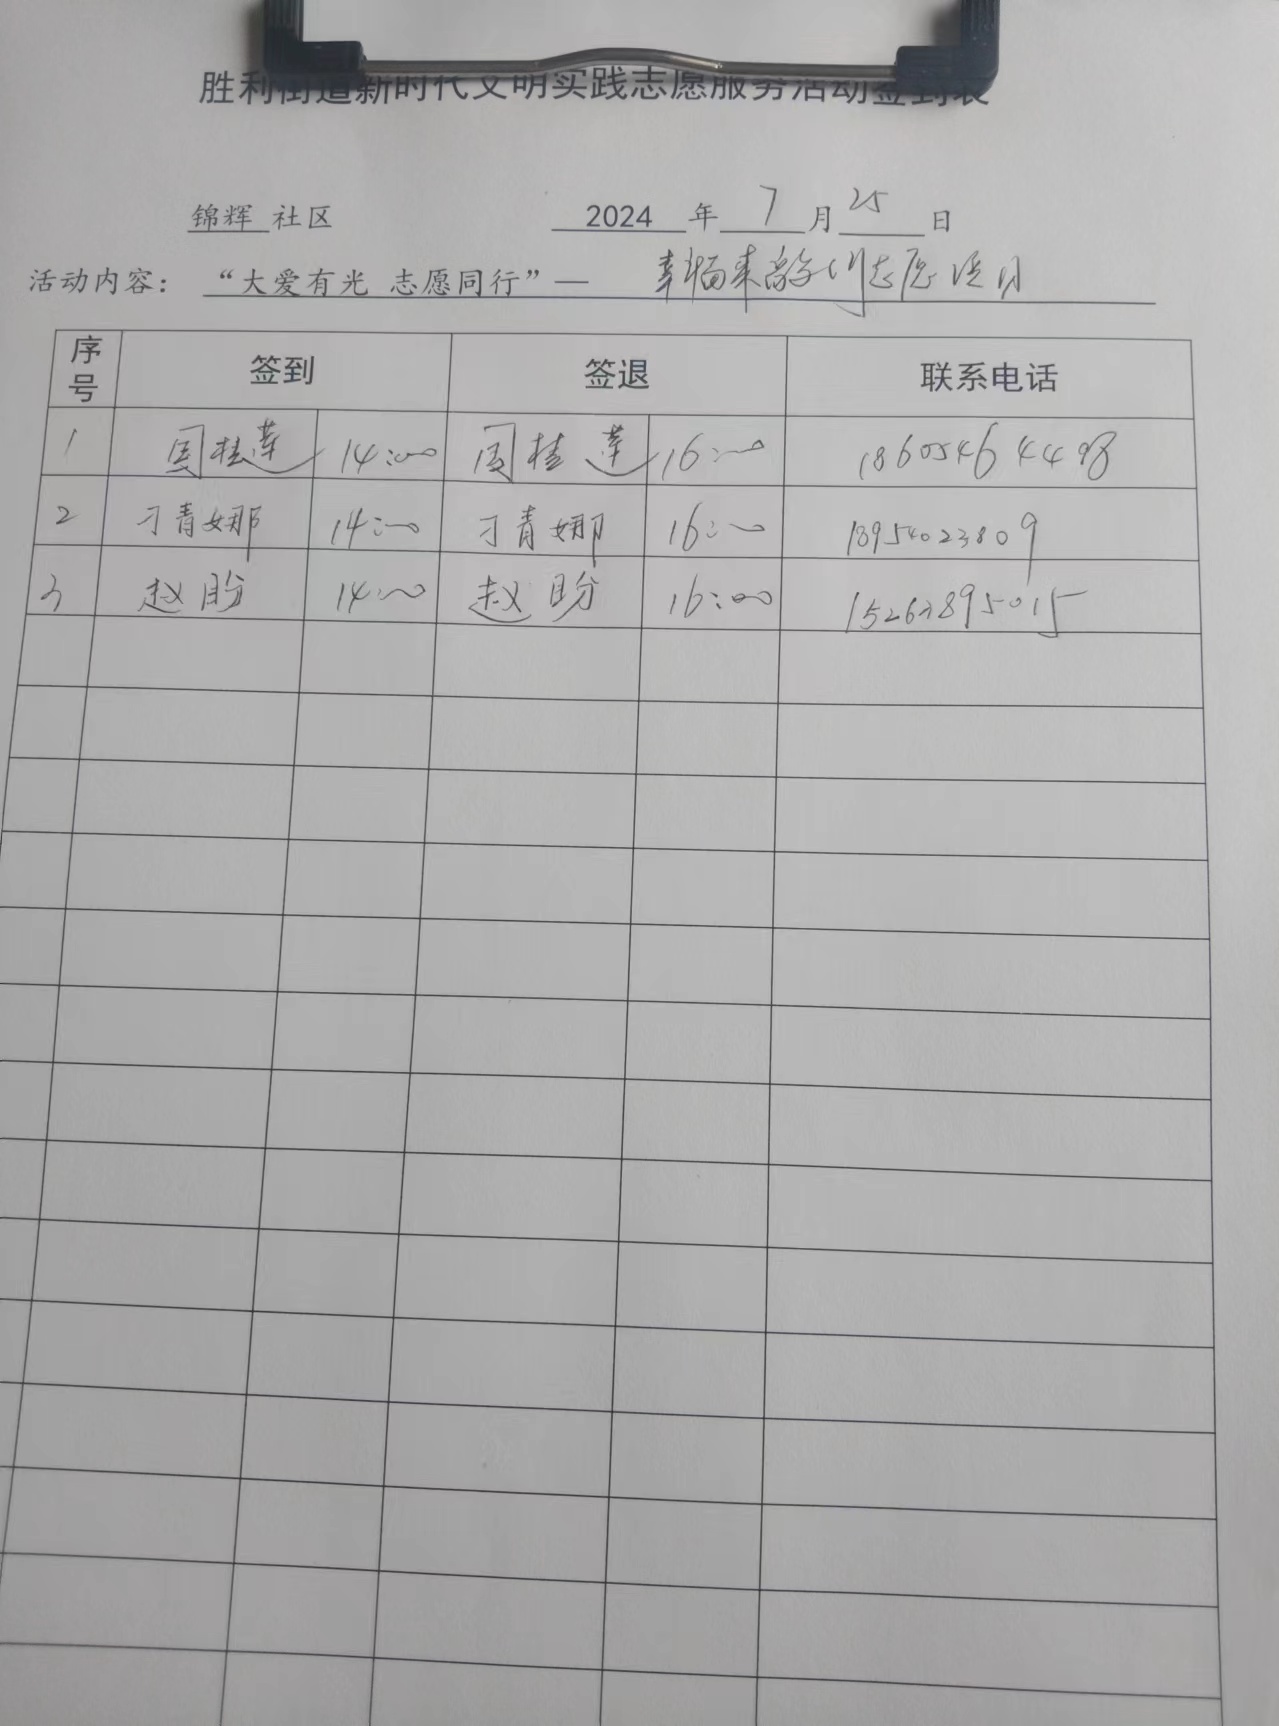 胜利街道新时代文明实践志愿服务活动签到表
锦辉 社区 2024 年 7 月 25 日
活动内容: “大爱有光 志愿同行”— 幸福来敲门志愿项目
序号 签到 签退 联系电话
1 周桂莲 14:00 周桂莲 16:00 18605464498
2 刁青娜 14:00 刁青娜 16:00 13954023809
3 赵盼 14:00 赵盼 16:00 15263895015